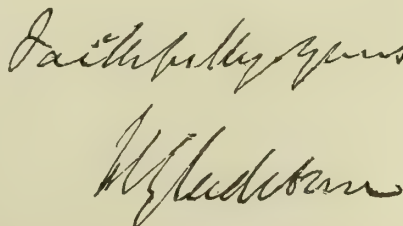 Faithfully yours
W Gladstone